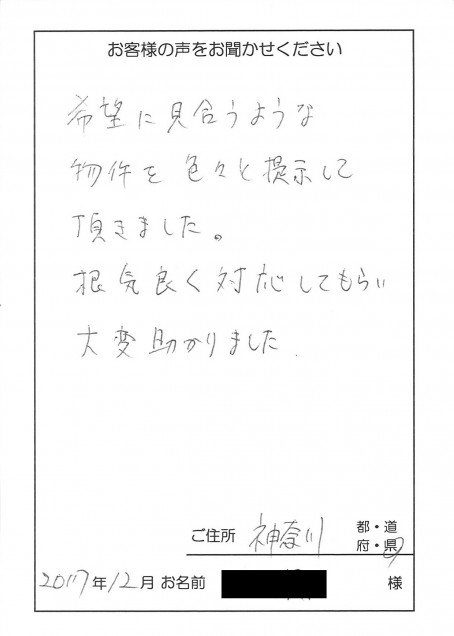 お客様の声をお聞かせください
希望に見合うような
物件を色々と提示して
頂きました。
根気良く対応してもらい
大変助かりました.
ご住所 神奈川 都・道
府・県
2017年12月 お名前 様